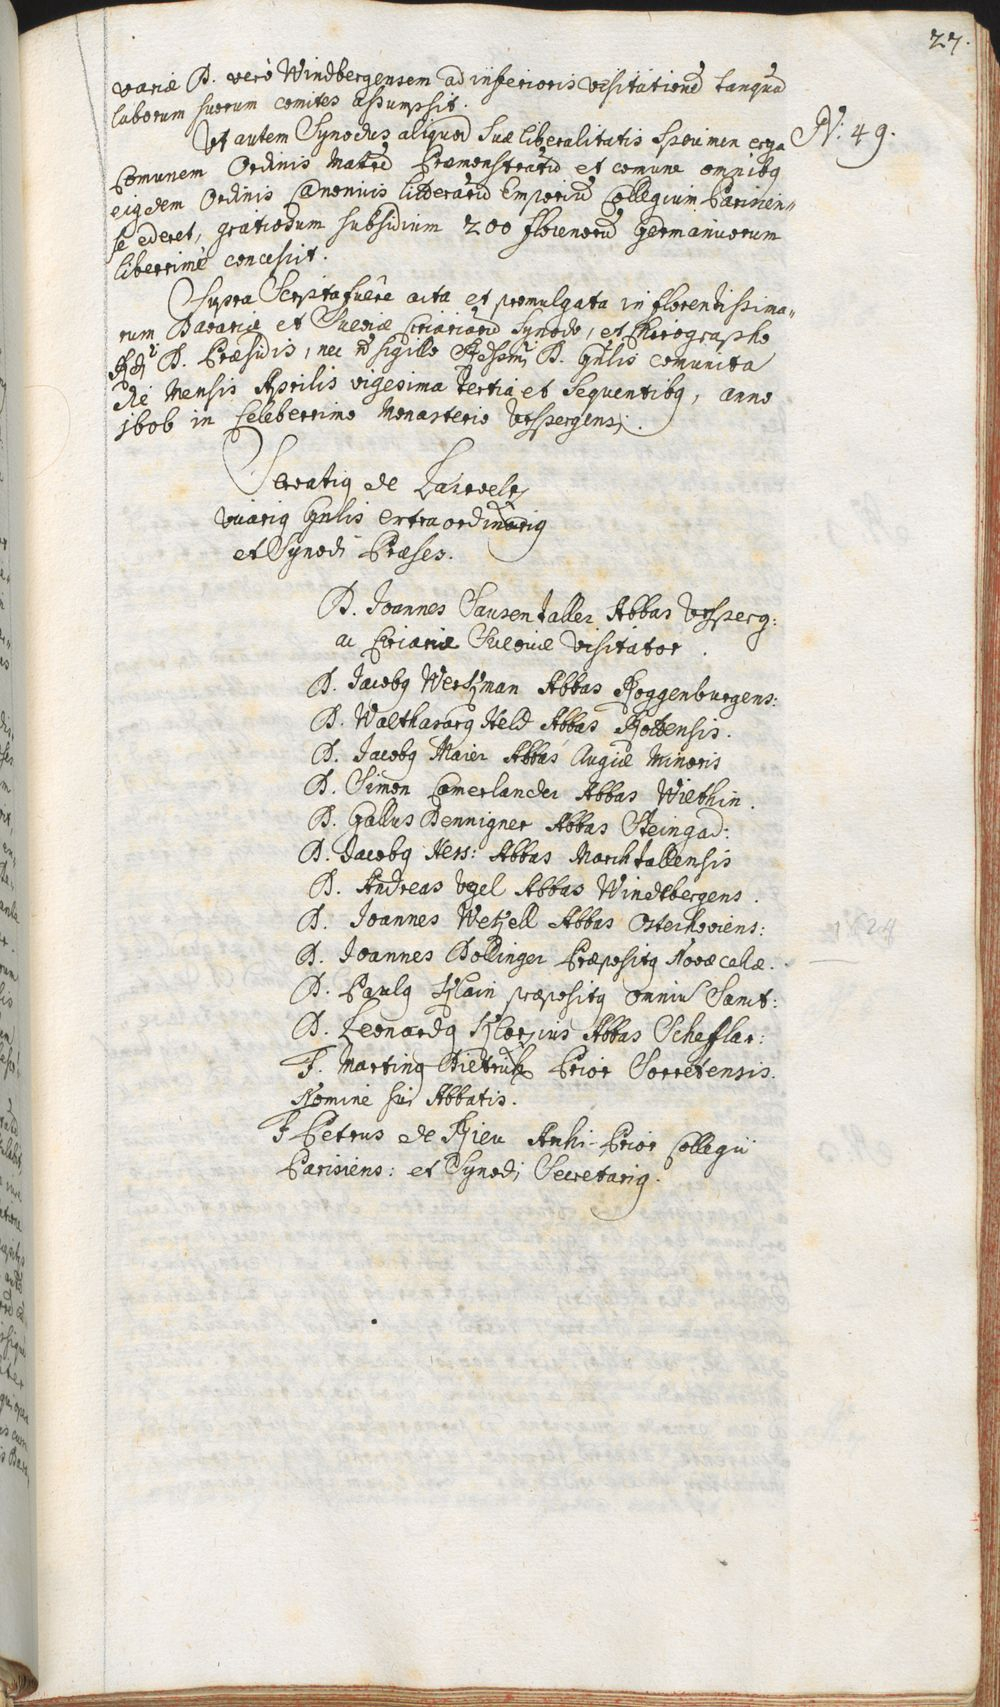 27.
variæ D. verò Windbergensem ad inferioris visitationē tanquā
laborum suorum comites assumpsit.
Ut autem Synodus aliquod Suæ liberalitatis Specimen erga
N. 49.
Comunem Ordinis Matrē Præmonstratū et comune omnibq
eiqdem Ordinis Canonicis litterarū Emporiū Collegium Parisien„
se ederet, gratiosum subsidium 200 florenorū germanicorum
liberrimè concessit.
Supra Scripta fuêre acta et promulgata in florentissima„
rum Bavariæ et Sueviæ Circariarū Synodo, et Chirographo
Rdi D. Præsidis, nec nō sigillo Rdssmi D. Gnlis comunita
die Mensis Aprilis vigesima Tertia et Sequentibq, anno
1606 in Celeberrimo Monasterio Urspergensi.
Servatiq de Lairvelz
vicariq Gnlis extraordinariq
et Synodi Præses.
D. Joannes Sausentaller Abbas Ursperg:
ac Circariæ Sueviæ Visitator.
D. Jacobq Wertzman Abbas Roggenburgens:
D. Walthasarq Held Abbas Rottensis.
D. Jacobq Maier Abbas Augiæ Minoris
D. Simon Camerlander Abbas Wilthin.
D. Gallus Dennigner Abbas Steingad:
D. Jacobq Hess: Abbas Marchtallensis
D. Andreas Vgel Abbas Windtbergens.
D. Joannes Wetzell Abbas Osterhoviens:
D. Joannes Bollinger Præpositq Novæcellæ.
D. Paulq Klain præpositq omniū Sanct:
D. Leonardq Klozius Abbas Scheflar:
F. Martinq Dietrich Prior Sorretensis.
Nomine sui Abbatis.
F Petrus de Rieu Archi-Prior Collegii
Parisiens: et Synodi Secretariq.